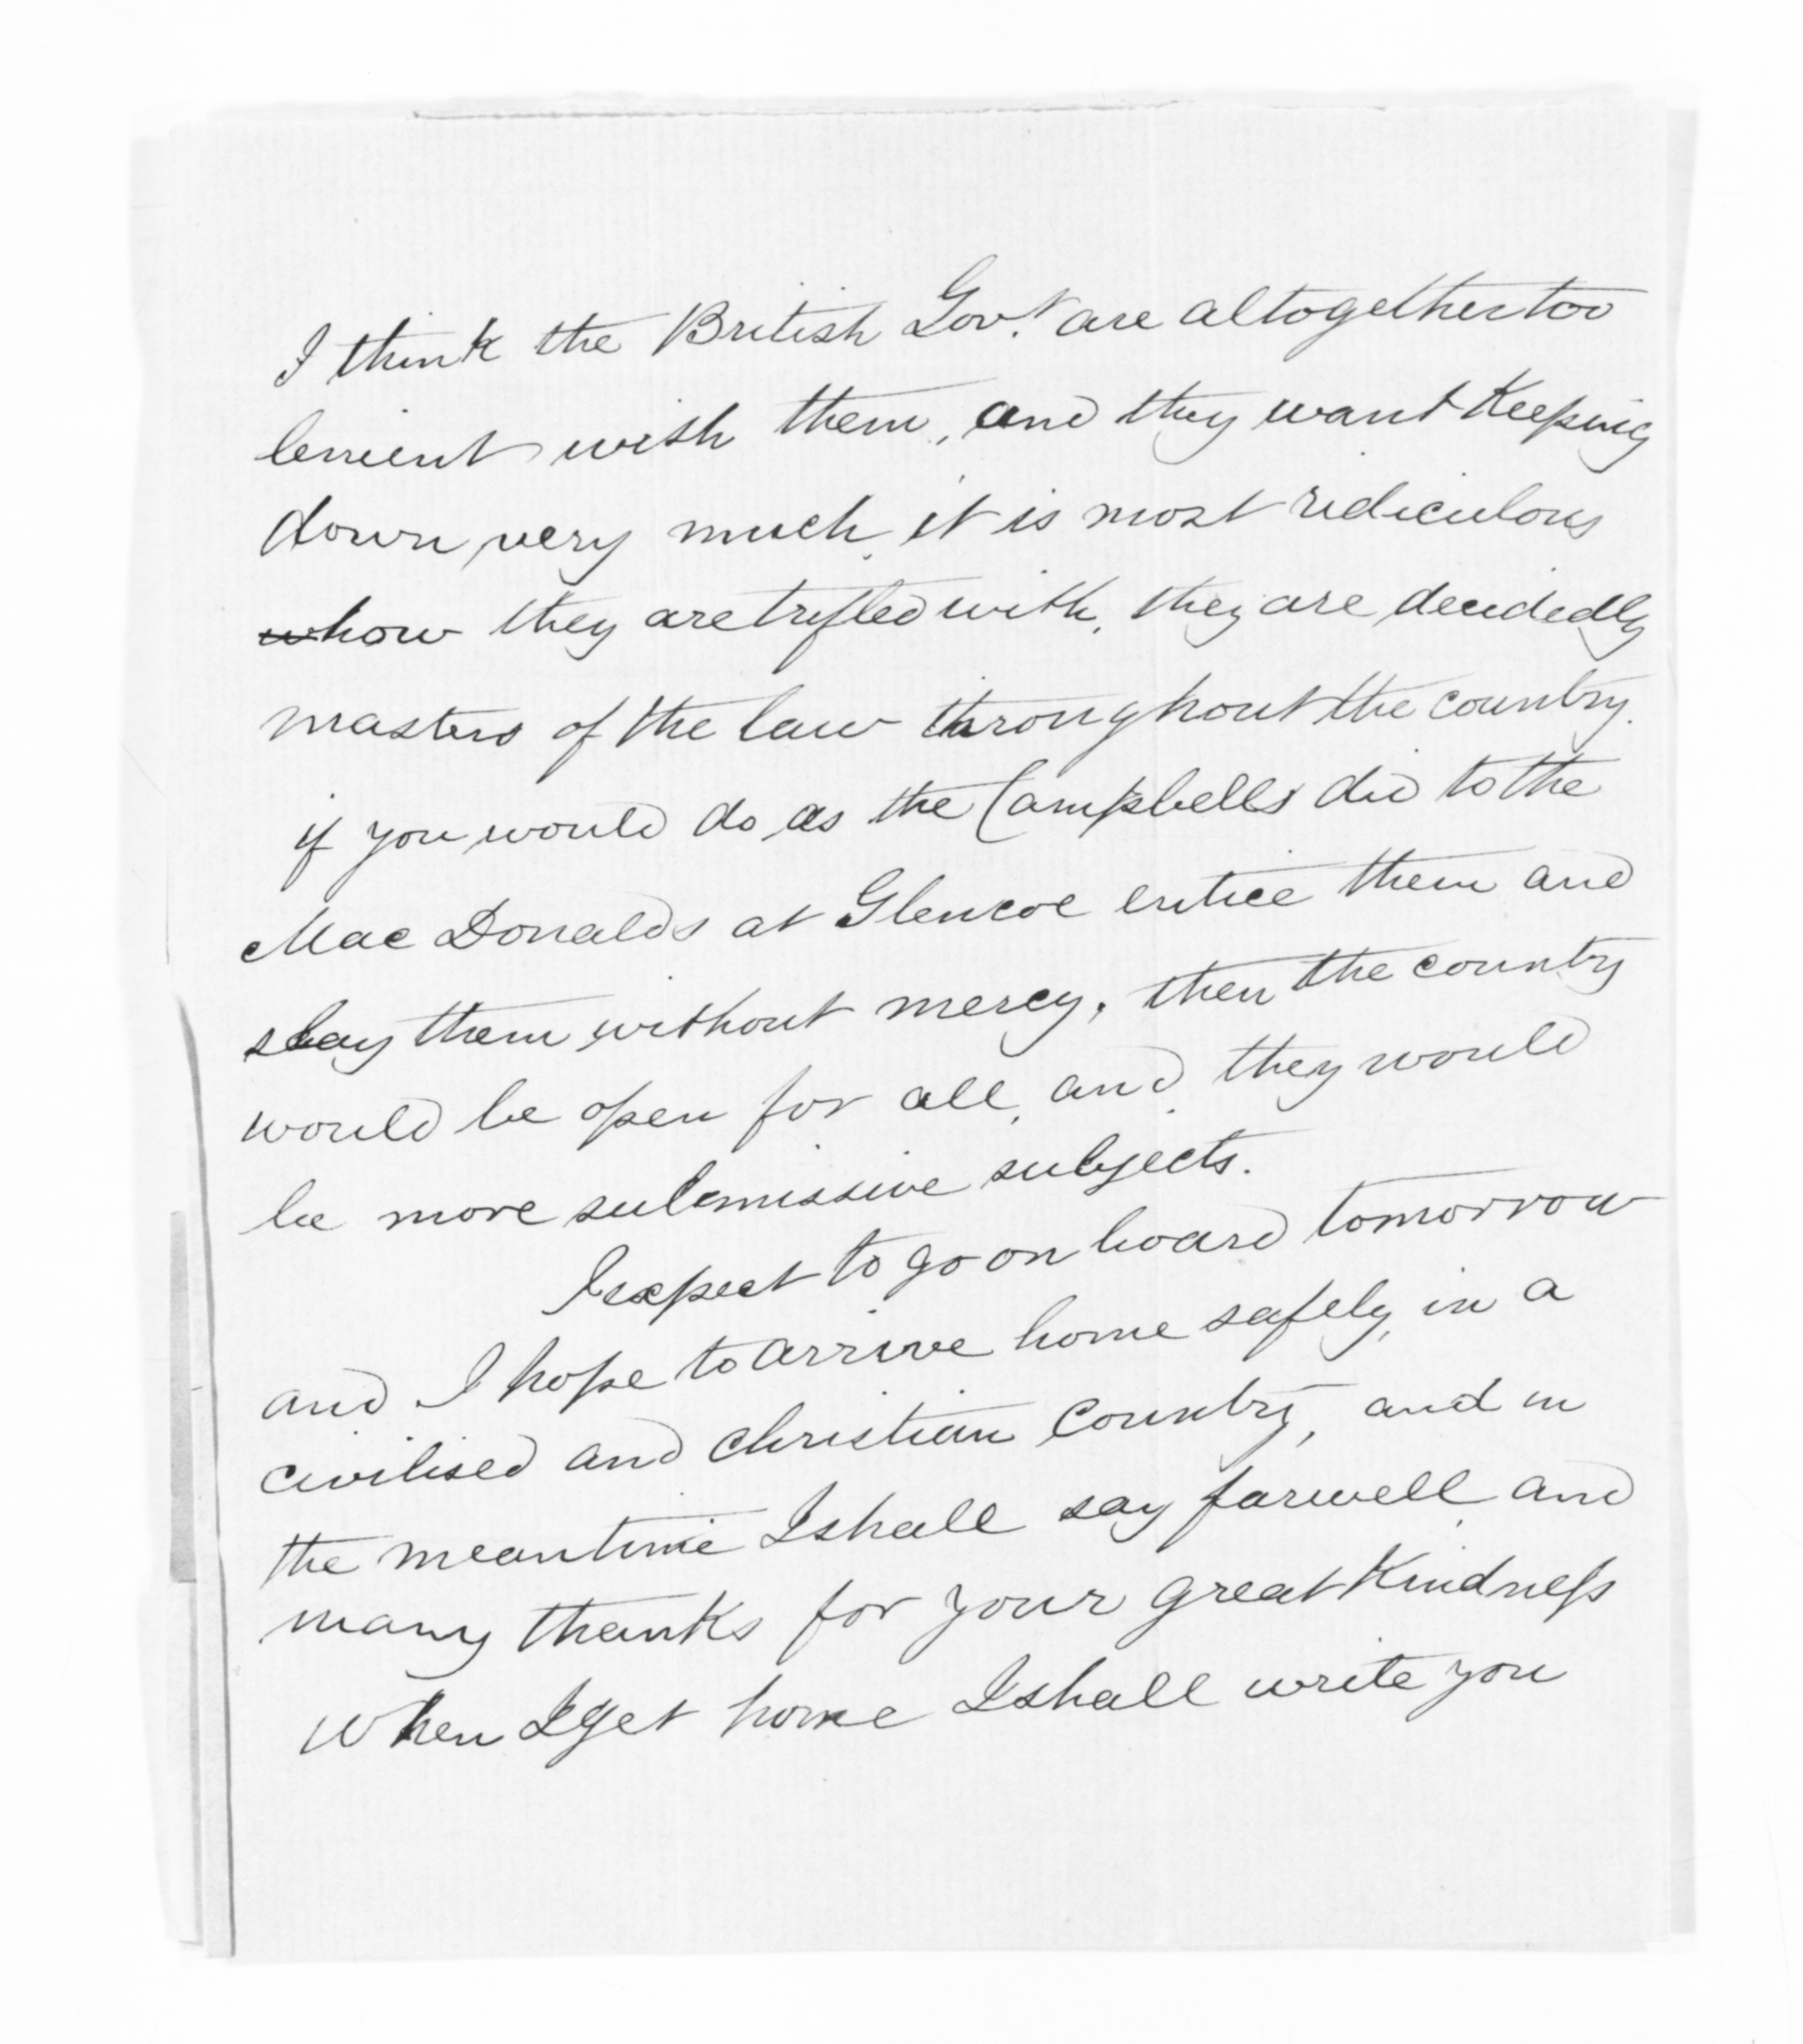 I think the British Govt. are altogether too
lenient with them, and they want Keeping
down very much, it is most ridiculous
how they are trifled with, they are decidedly
masters of the law throughout the country.
if you would do as the Campbells did to the
Mac Donalds at Glencoe entice them and
slay them without mercy, then the country
would be open for all, and they would
be more submissive subjects.
I expect to go on board tomorrow
and I hope to arrive home safely, in a
civilised and christian country, and in
the meantime I shall say farwell and
many thanks for your great Kindness
When I get home I shall write you